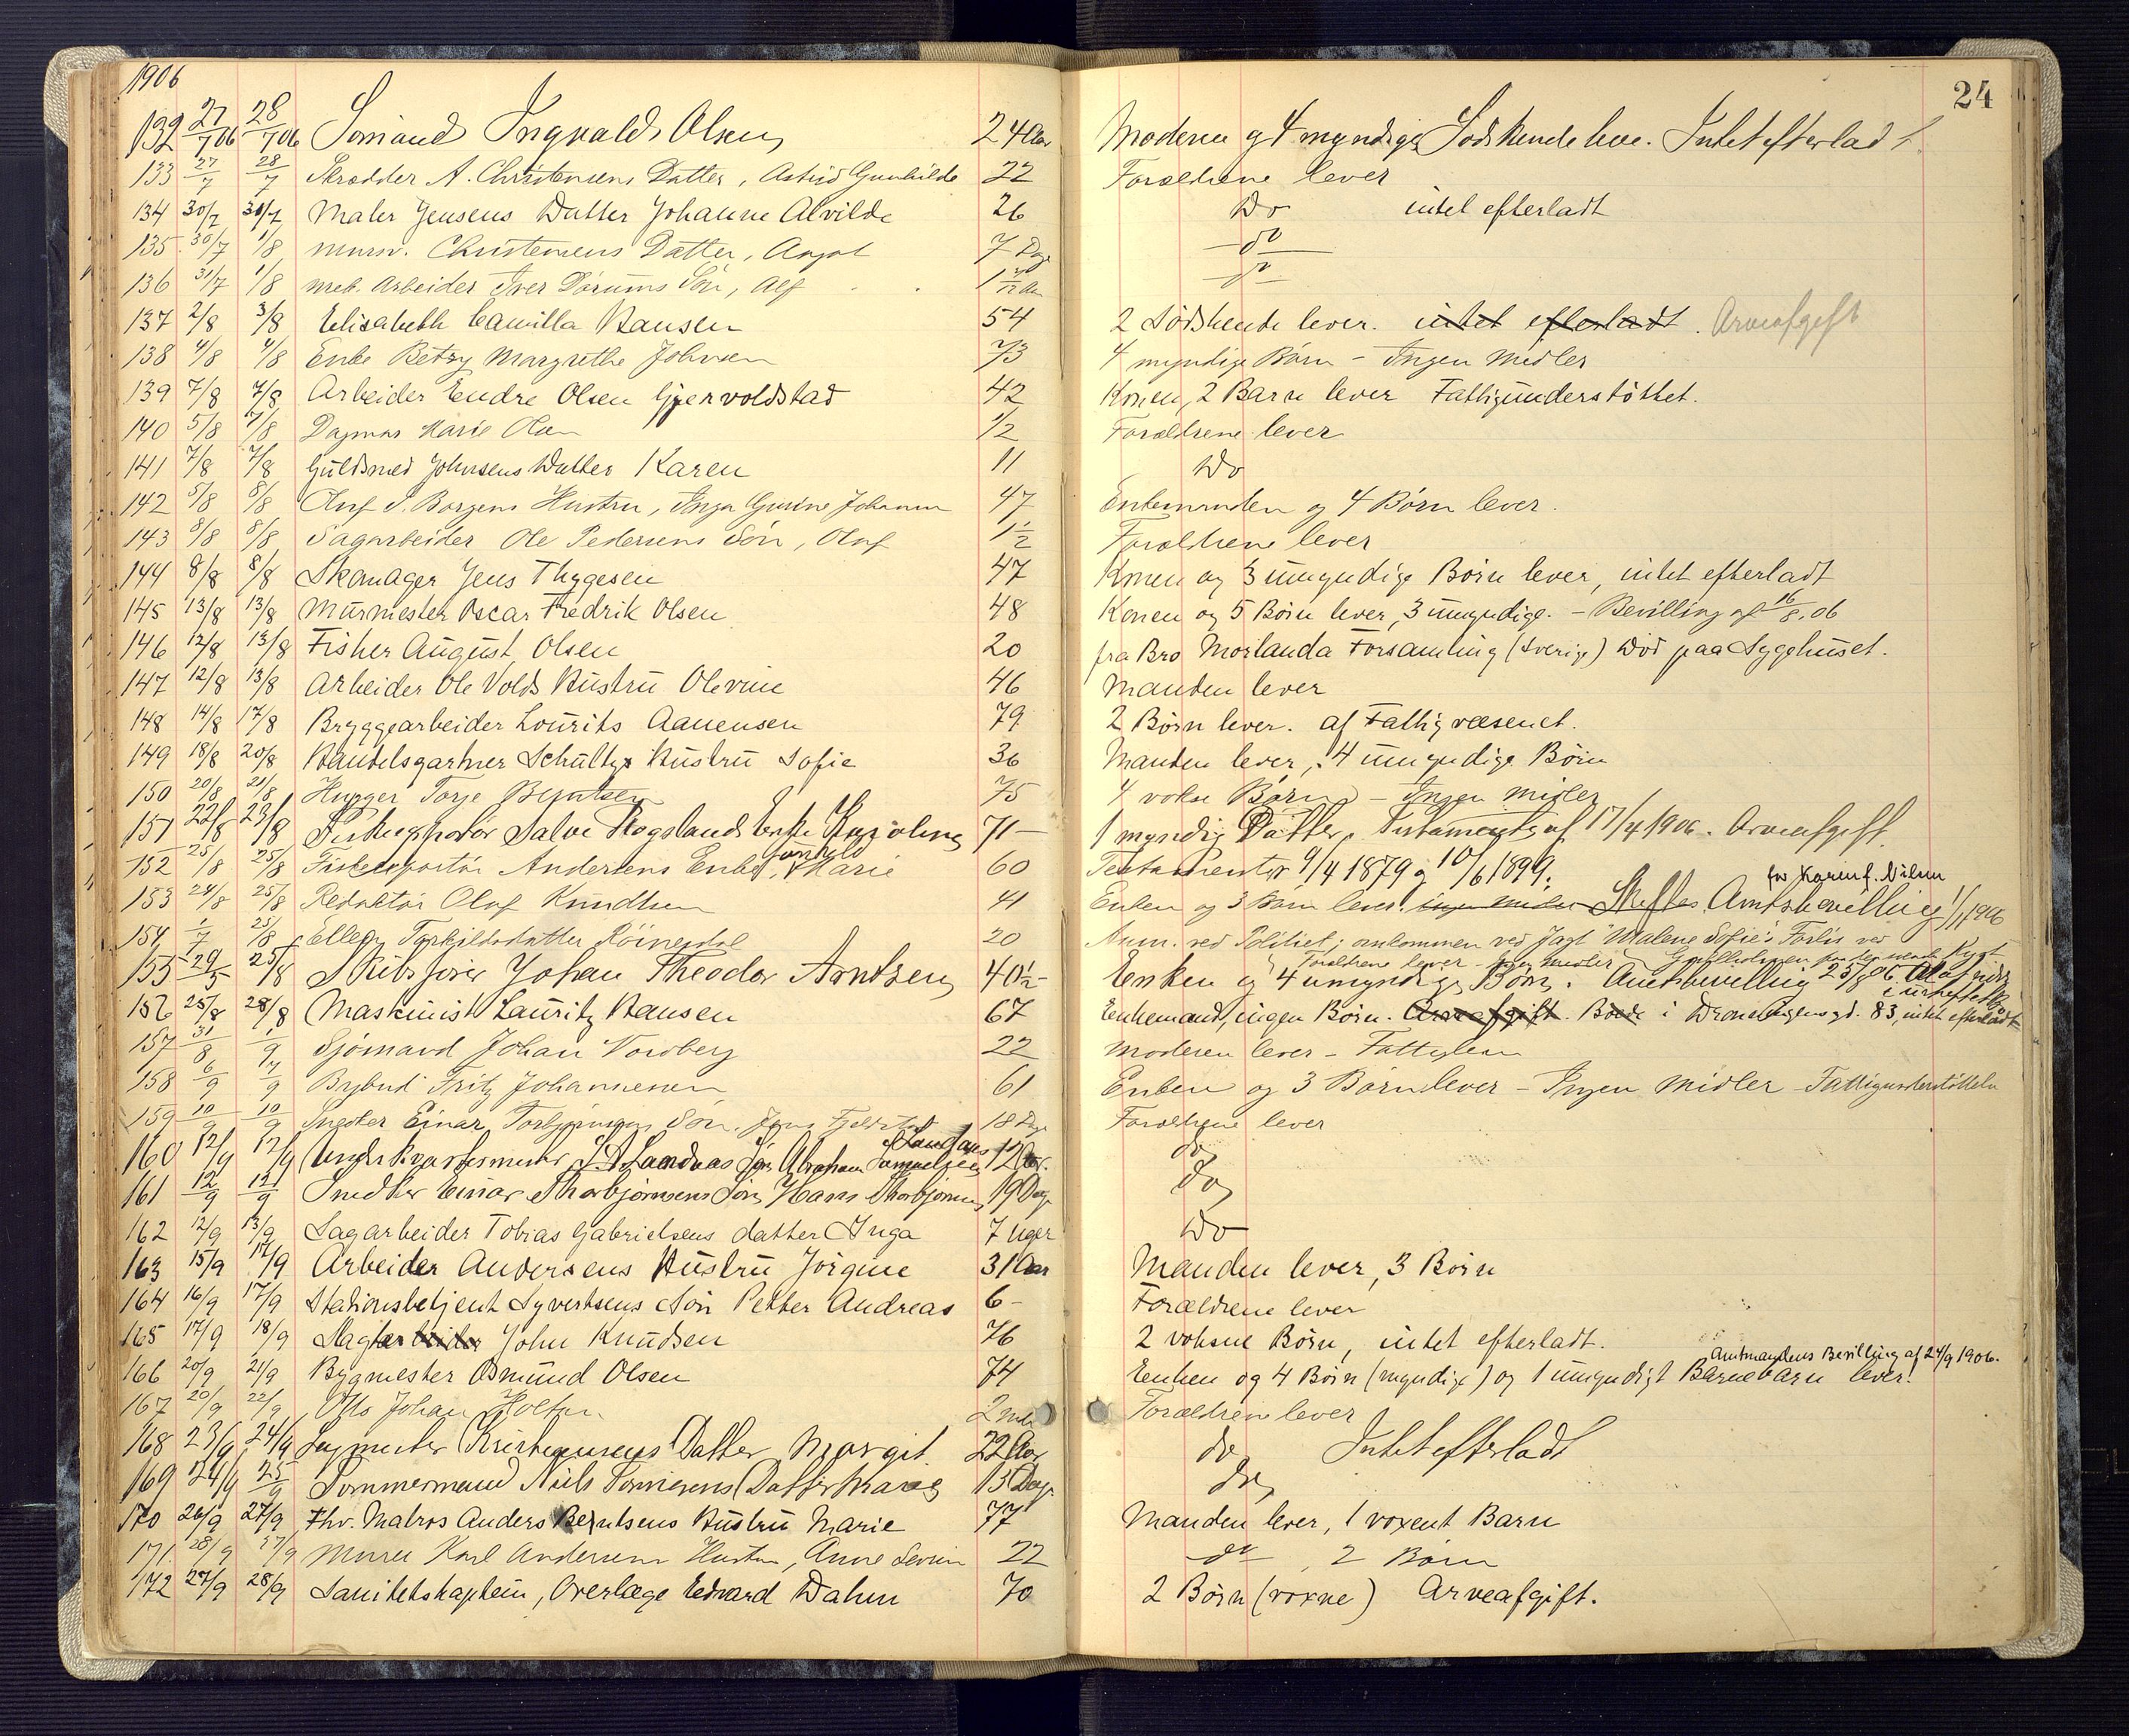 1906
24
132 27/7 06 28/7 06 Sømand Ingvald Olsen 24 Aar Moderen og 4 myndige Sødskende leve. Intet efterladt
133 27/7 28/7 Skrædder A. Christensens Datter, Astrid Gunhilde 22 Forældrene lever
134 30/7 31/7 Maler Jensens Datter Johanne Alvilde 26 Do intet efterladt
135 30/7 1/8 Murer. Christensens Datter, 7 Dage do
136 31/7 1/8 mek. Arbeider Iver Dørums Søn, Alf 1 do
137 2/8 3/8 Elisabeth Camilla Hansen 54 2 Sødskende lever. intet efterladt. Arveafgift
138 4/8 4/8 Enke Betzy Margrethe Johnsen 73 4 myndige Børn - Ingen Midler
139 7/8 7/8 Arbeider Endre Olsen Gjervoldstad 42 Konen, 2 Barn lever Fattigunderstøttet.
140 5/8 7/8 Dagmar Marie Olsen 1/2 Forældrene lever
141 7/8 7/8 Guldsmed Johnsens Datter Karen 11 Do
142 5/8 8/8 Oluf S. Borgens Hustru, Inga Gurine Johanne 47 Enkemanden og 4 Børn lever.
143 8/8 8/8 Sagarbeider Ole Pedersens Søn, Olaf 1 1/2 Forældrene lever
144 8/8 8/8 Skomager Jens Thygesen 47 Konen og 3 umyndige Børn lever, intet efterladt
145 13/8 13/8 Murmester Oscar Fredrik Olsen 48 Konen og 5 Børn lever, 3 umyndige. - Bevilling af 16/8.06
146 12/8 13/8 Fisker August Olsen 20 fra Bro Morlanda Forsamling (Sverige) Død paa Sygehuset.
147 12/8 13/8 Arbeider Ole Volds Hustru Olevine 46 Manden lever
148 14/8 17/8 Bryggearbeider Lourits Aanensen 79 2 Børn lever. af Fattigvæsenet.
149 18/8 20/8 Handelsgartner Schultz's Hustru Sofie 36 Manden lever, 4 umyndige Børn
150 20/8 21/8 Hugger Torje Berntsen 75 4 vokse Børn - Ingen midler
151 22/8 23/8 Salve Hogslands Enke Karoline 71 - 1 myndig Datter. Testament af 17/4 1906. Arveafgift.
152 25/8 25/8 Fiskexportør Andersens Enke, Marie 60 Testamenter 9/4 1879 og 10/6 1899.
153 24/8 25/8 Redaktør Olaf Knudtsen 41 Enken og 3 Børn lever. ingen midler Skiftes. Amtsbevilling 1/11 1906
for Karen f. Nilsen
154 1/7 25/8 Ellen Tarkildsdatter Röinesdal 20 Anm. ved Politiet; omkommen ved Jagt "Malene Sofie's Forlis ved
Forældrene lever - Ingen midler
155 29/5 25/8 Skibsfører Johan Theodor Arntzen 40 1/2 Enken og 4 umyndige Børn. Amtsbevilling 25/8 06.
156 25/8 28/8 Maskinist Lauritz Hansen 67 Enkemand, ingen Børn. Arveafgift. Boede i Dronningensgd. 83, intet efterladt
157 31/8 1/9 Sjømand Johan Vordberg 22 Moderen lever - Fattiglem
158 6/9 7/9 Bybud Fritz Johannesen 61 Enken og 3 Børn lever - Ingen Midler - Fattigunderstøttelse
159 10/9 10/9 Snedker Einar Torbjørnsens Søn. Jens 18 Dage Forældrene lever
160 12/9 12/9 Underkvartermester S. A. Landaas Søn Abraham Samuelsen Landaas 12 Aar. do
161 12/9 12/9 Snedker Einar Thorbjørnsens Søn Hans Thorbjørnsen 19 Dage do
162 12/9 13/9 Sagarbeider Tobias Gabrielsens datter Inga 7 Uger Do
163 15/9 17/9 Arbeider Andersens Hustru Jørgine 31 Aar Manden lever, 3 Børn
164 16/9 17/9 Stationsbetjent Syvertsens Søn Petter Andreas 6 - Forældrene lever
165 17/9 18/9 Slagter John Knudsen 76 2 voksne Børn, intet efterladt.
166 20/9 21/9 Bygmester Osmund Olsen 74 Enken og 4 Børn (myndige) og 1 umyndigt Barnebarn lever.
Amtmandens Bevilling af 24/9 1906.
167 20/9 22/9 Otto Johan Holten 2 mdr Forældrene lever
168 23/9 24/9 Kristiansens Datter Margit 22 Aar do Intet efterladt
169 24/9 25/9 Tømmermand Niels Datter 13 Dage do
170 26/9 27/9 Fhv. Matros Anders Berntsens Hustru Marie 77 Manden lever, 1 voxent Barn
171 28/9 27/9 Murer Karl Andersens Hustru, Anne Severine 22 do, 2 Børn
172 27/9 28/9 Sanitetskaptein, Overlæge Edvard Dahm 70 2 Børn (voxne) Arveafgift.